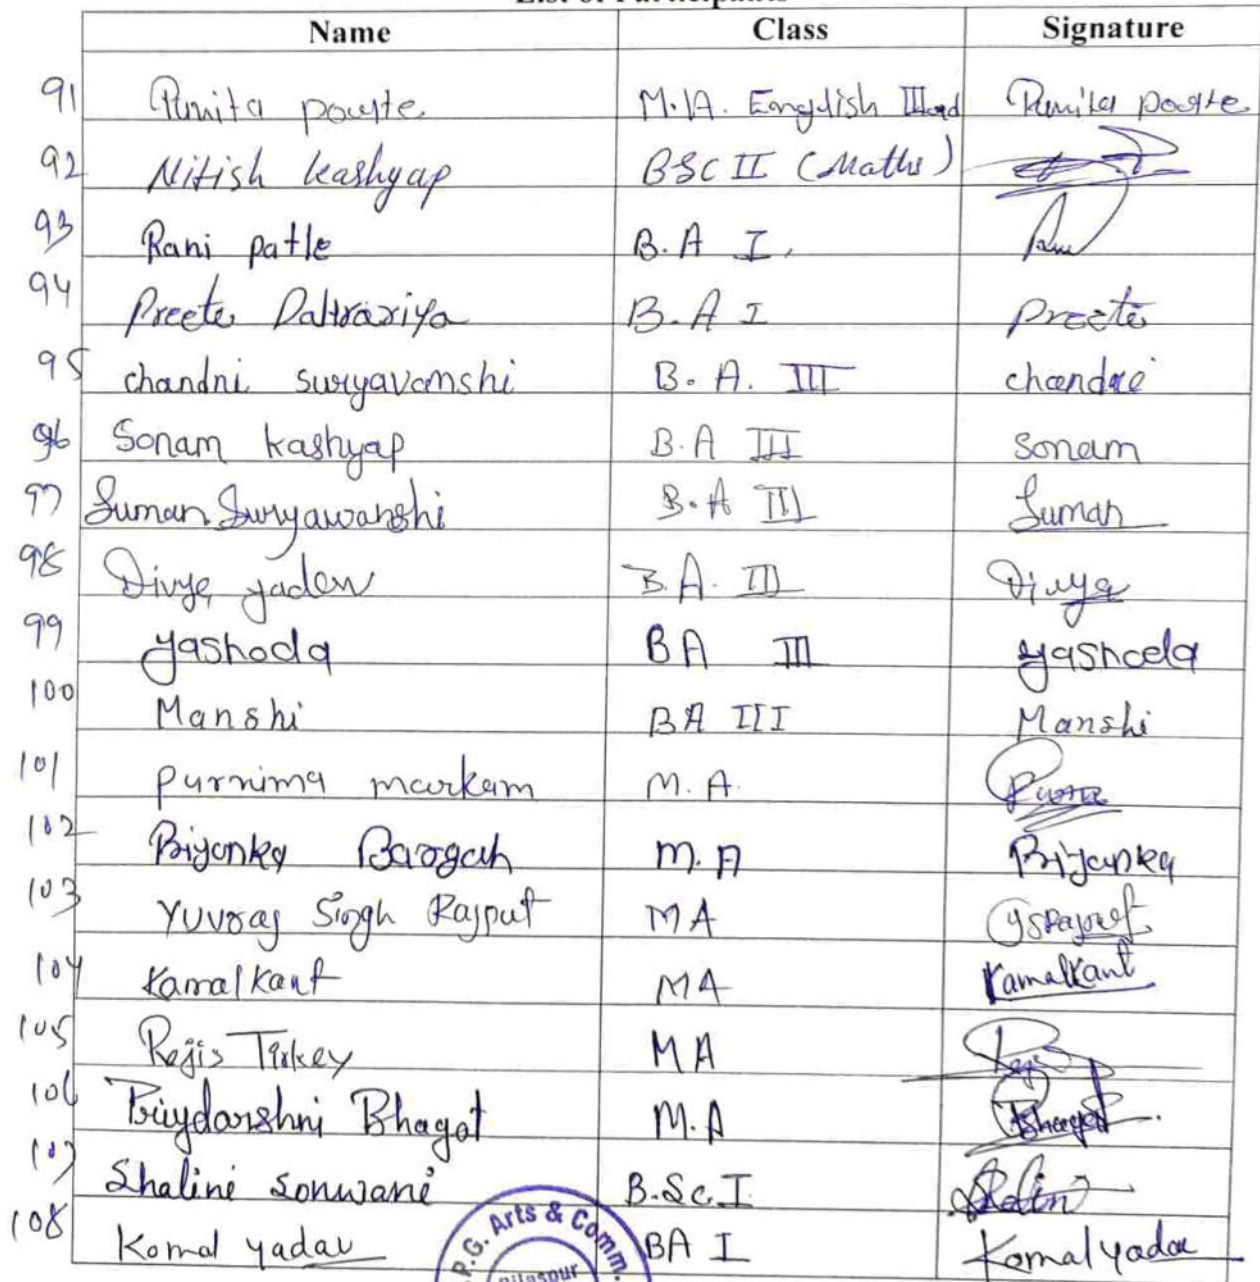 List of Participants
Name Class Signature
91 Punita poyte M.A. English IIIrd Punita poyte
92 Nitish kashyap BSC II (Maths)
93 Rani patle B.A I.
94 Preeti B.A I Preeti
95 chandni suryavanshi B.A. III chandni
96 Sonam kashyap B.A III Sonam
97 Suman Suryawanshi B.A III Suman
98 Divya yadav B.A. III Divya
99 Yashoda BA III Yashoda
100 Manshi BA III Manshi
101 Purnima markam M.A.
102 Priyanka Bargah M.A Priyanka
103 Yuvraj Singh Rajput MA YSRajput
104 Kamalkant MA Kamalkant
105 Rejis Tirkey MA Rejis
106 Priydarshni Bhagat M.A Bhagat
107 Shalini Sonwani B.Sc. I Shalini
108 Komal yadav BA I Komal yadav
P.G. Arts & Comm.
Bilaspur